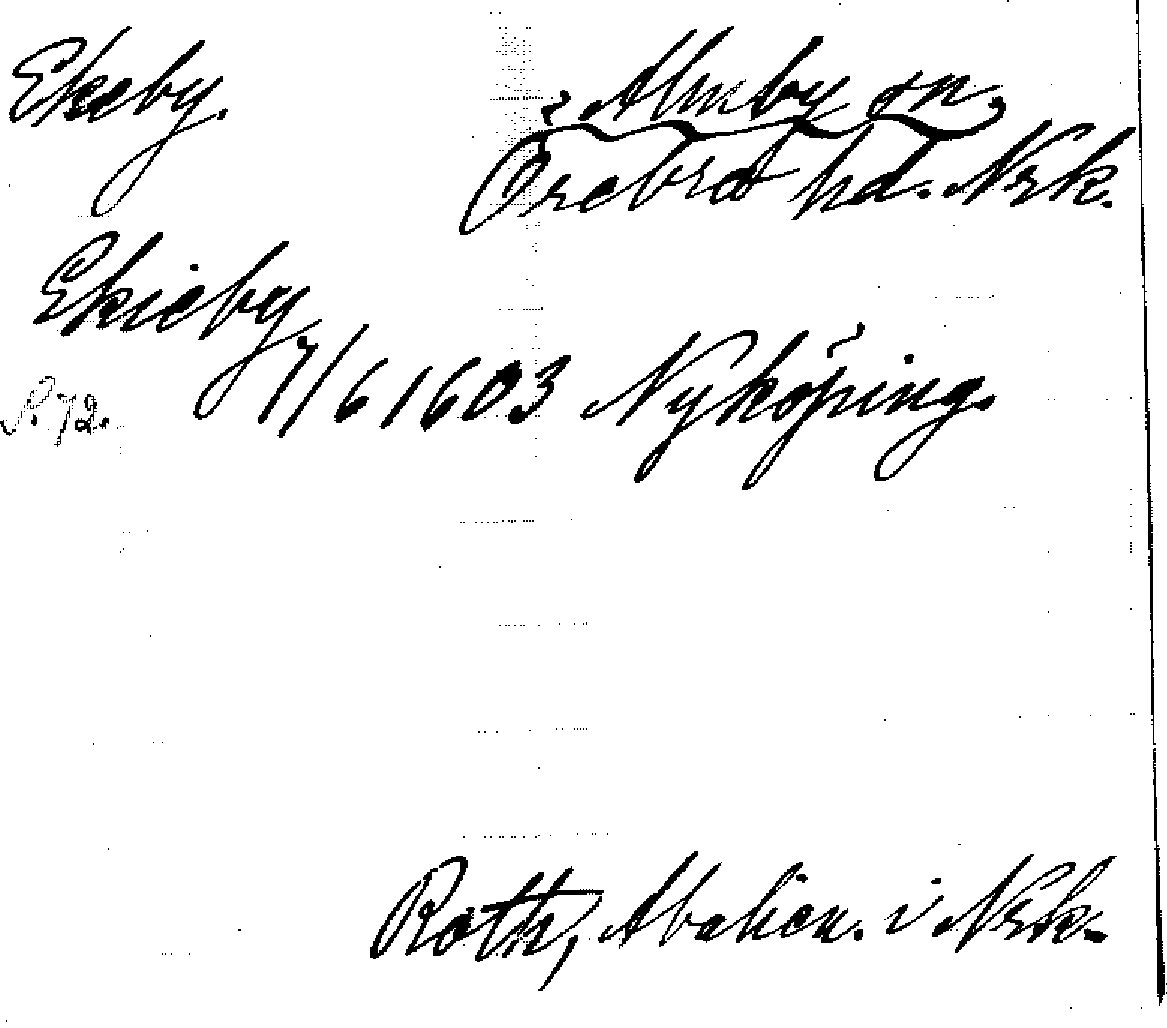 Ekeby. Almby sn,
Örebro hd. Nrk.
Ekieby
S. 72. 7/6 1603 Nyköping.
Roth, i Nrk.